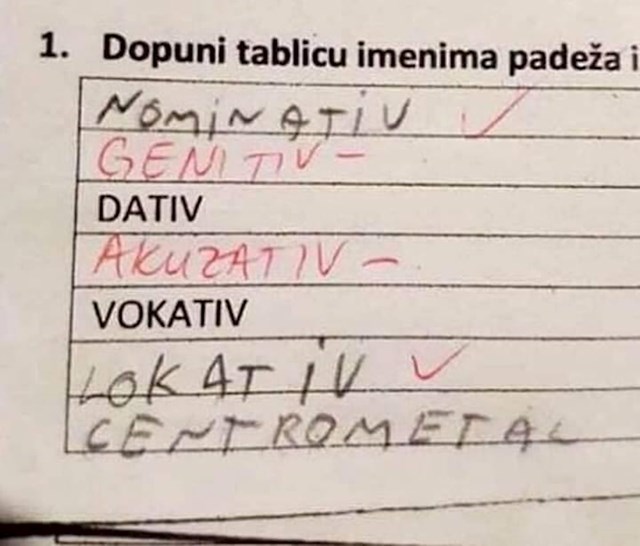 1. Dopuni tablicu imenima padeža i
NOMiNATiV ✓
GENITIV –
DATIV
AKUZATIV –
VOKATIV
LOKATiV ✓
CENTROMETAL